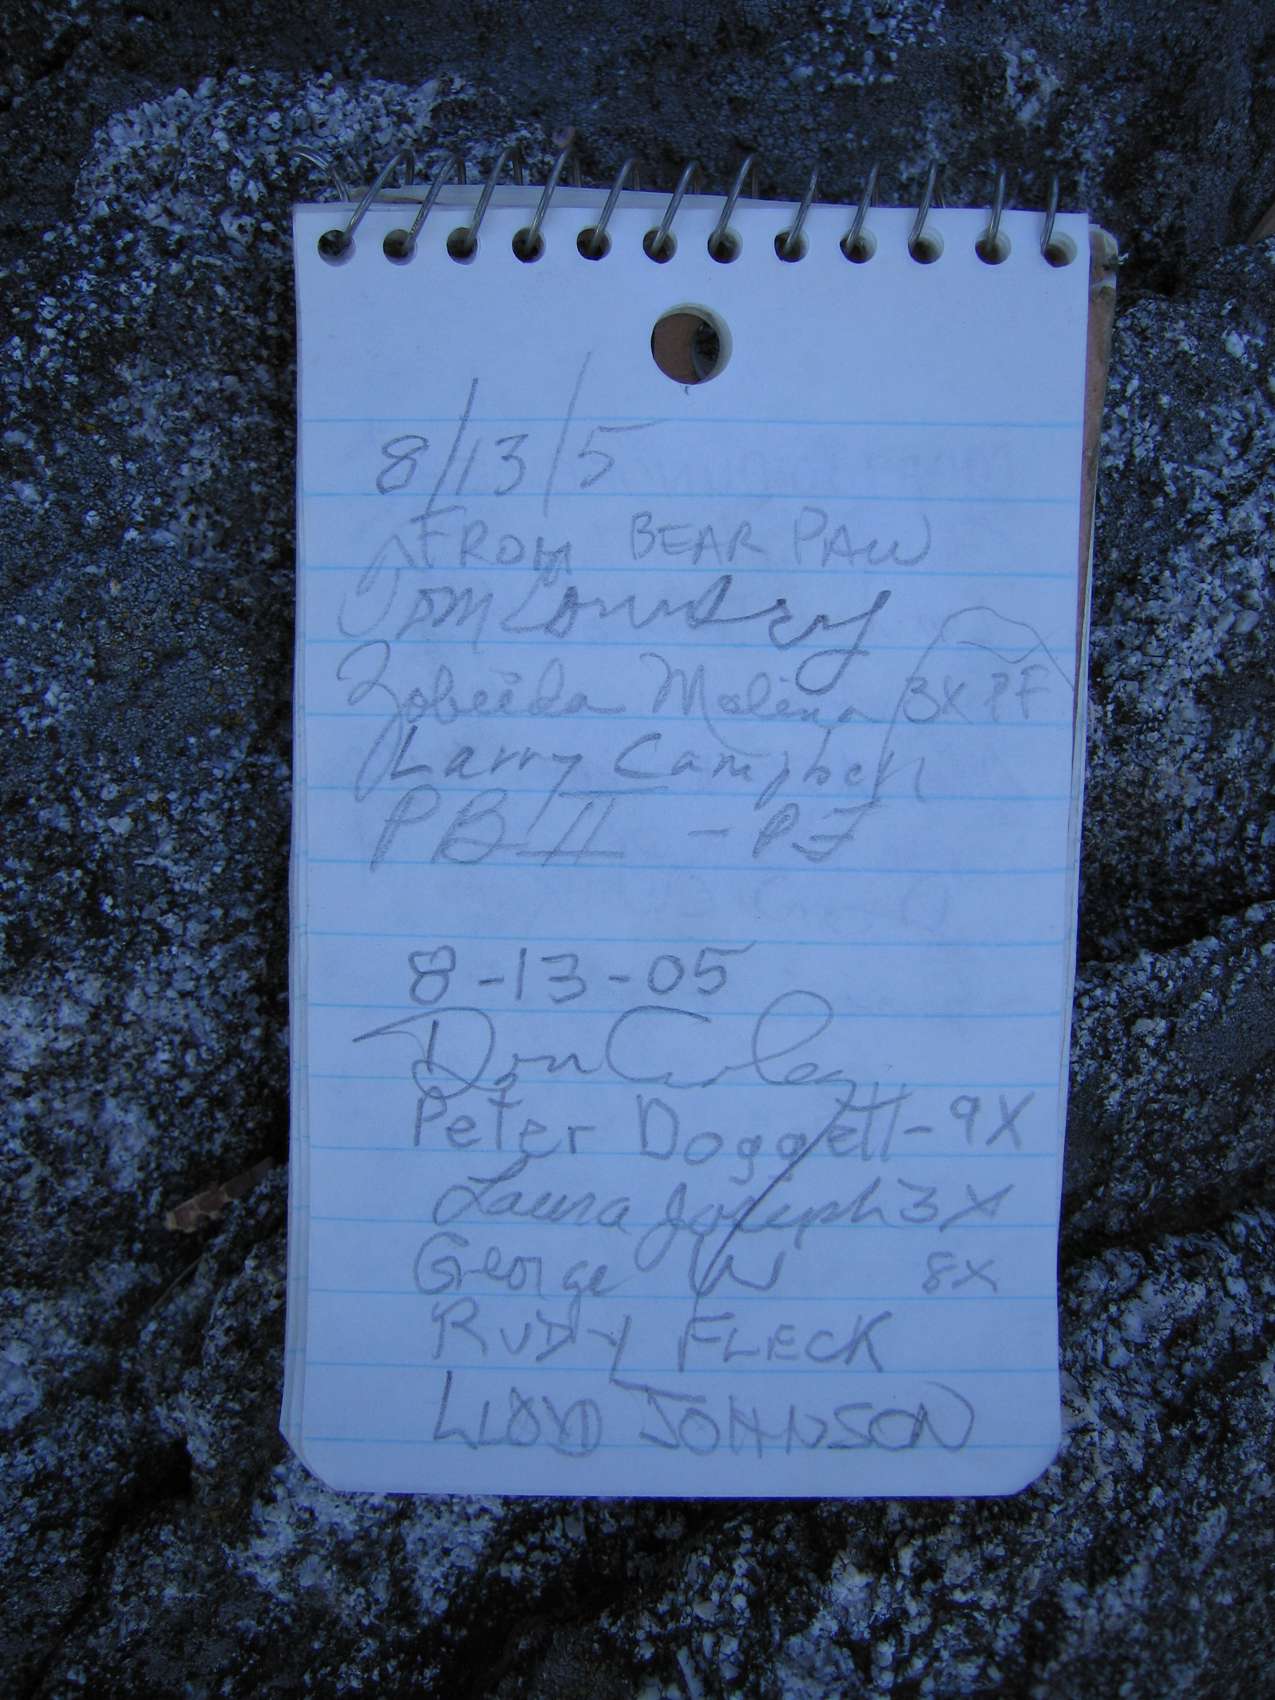 8/13/5
FROM BEAR PAW
Tom
Zobeida Molina 3X PF
Larry Campbell
PB II - PF
8-13-05
Don
Peter Doggett - 9X
Laura Joseph 3X
George W 8X
RUDY FLECK
LLOYD JOHNSON